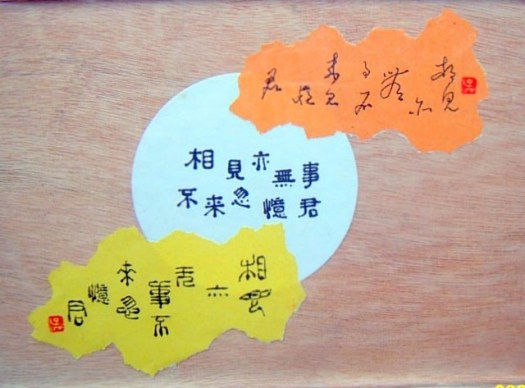 相見
亦
無
事不
来忽
憶
君
相見亦無事
不来忽憶君
相見
亦
无
事不
来忽
憶
君